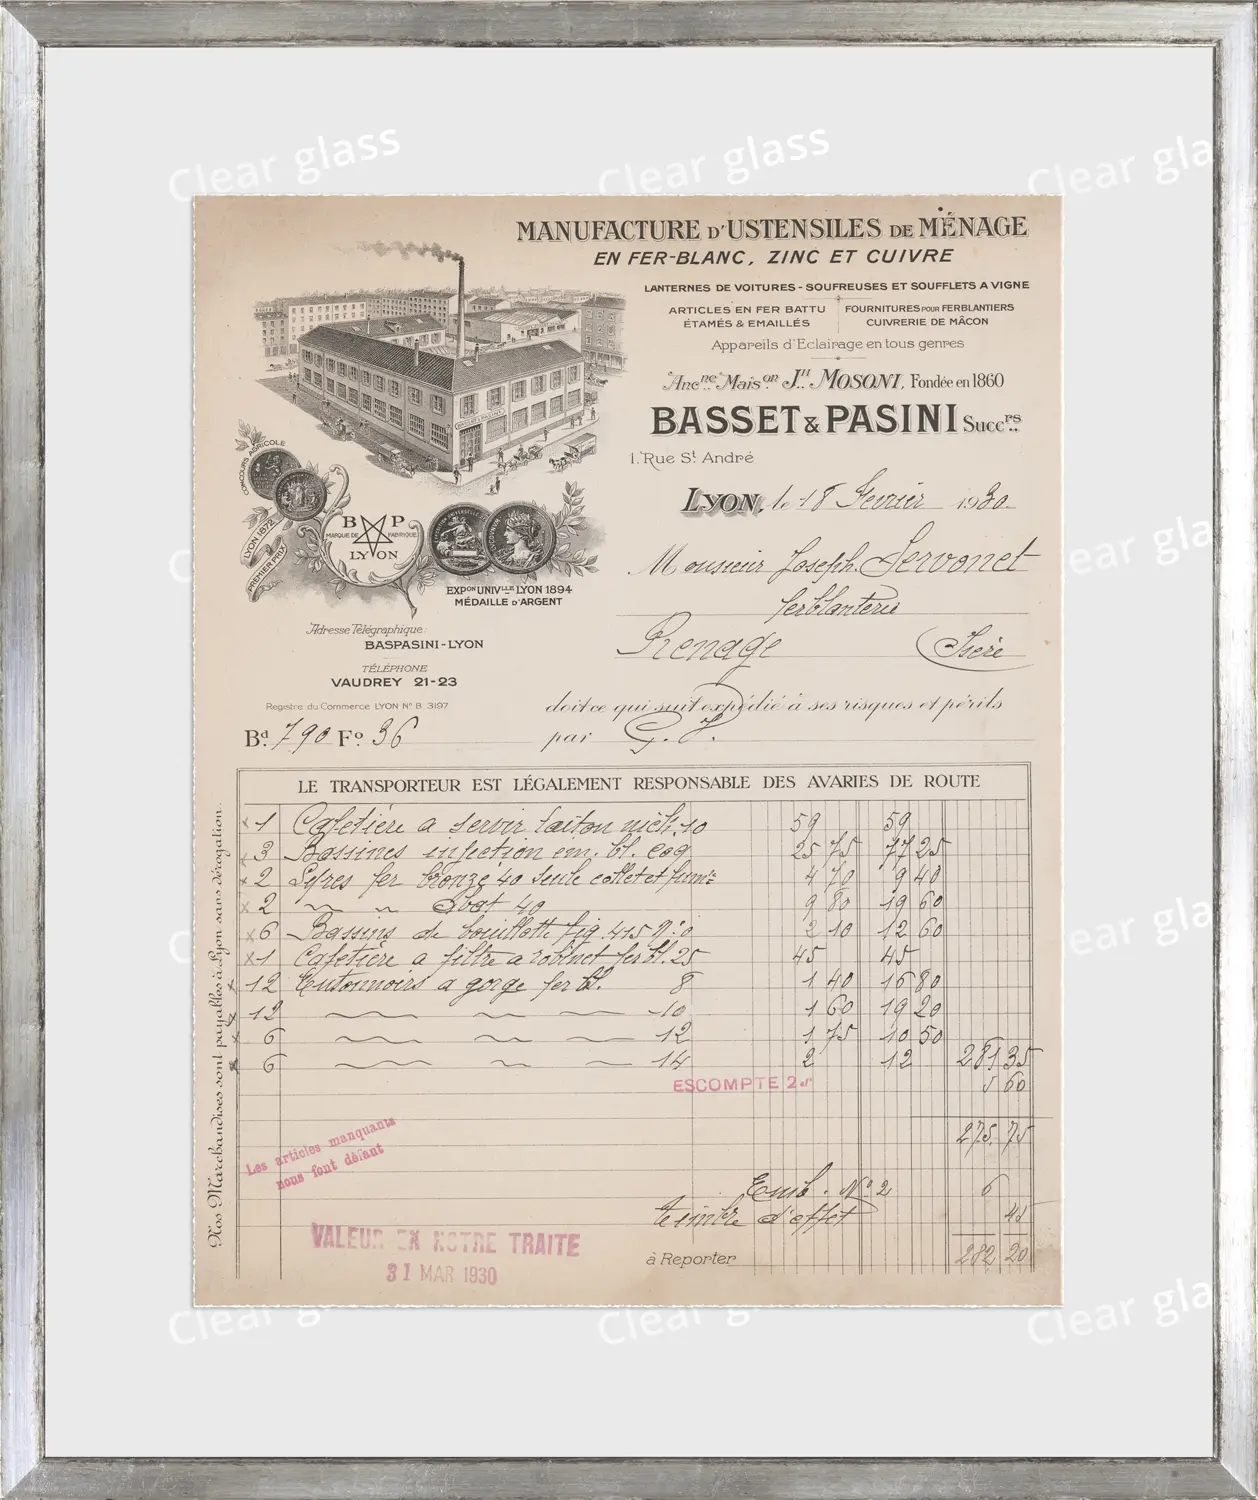 Clear glass Clear glass Clear gla
MANUFACTURE D'USTENSILES DE MÉNAGE
EN FER-BLANC, ZINC ET CUIVRE
LANTERNES DE VOITURES - SOUFREUSES ET SOUFFLETS A VIGNE
ARTICLES EN FER BATTU
ÉTAMÉS & EMAILLÉS
FOURNITURES POUR FERBLANTIERS
CUIVRERIE DE MÂCON
Appareils d'Eclairage en tous genres
Ancne Maison Jh MOSONI, Fondée en 1860
BASSET & PASINI Succrs
1, Rue St André
BASSET & PASINI
CONCOURS AGRICOLE
LYON 1872
PREMIER PRIX
B P
MARQUE DE FABRIQUE
LYON
EXPON UNIVLLE LYON 1894
MÉDAILLE D'ARGENT
LYON, le 18 Fevrier 1930
Monsieur Joseph Servonet
ferblanterie
Renage (Isère
Adresse Télégraphique:
BASPASINI-LYON
TÉLÉPHONE
VAUDREY 21-23
Registre du Commerce LYON No B. 3197
Bd 790 Fo 36
doit ce qui suit expédié à ses risques et périls
par G. V.
LE TRANSPORTEUR EST LÉGALEMENT RESPONSABLE DES AVARIES DE ROUTE
Nos Marchandises sont payables à Lyon sans dérogation
x 1 Cafetière a servir laiton nick. 10 59 59
x 3 Bassines injection em. bl. coq 25 75 77 25
x 2 Lyres fer bronzé 40 seule collet et fumre 4 70 9 40
x 2 ~ ~ 40 9 80 19 60
x 6 Bassins de bouillotte fig. 415 No 0 2 10 12 60
x 1 Cafetière a filtre a robinet fer bl. 25 45 45
x 12 Entonnoirs a gorge fer bl. 8 1 40 16 80
x 12 ~ ~ ~ 10 1 60 19 20
x 6 ~ ~ ~ 12 1 75 10 50
x 6 ~ ~ ~ 14 2 12 281 35
ESCOMPTE 2 % 5 60
275 75
Les articles manquants
nous font défaut
Emb. No 2 6
timbre d'effet 45
VALEUR EN NOTRE TRAITE
31 MAR 1930
à Reporter 282 20
Clear gla Clear glass Clear gla